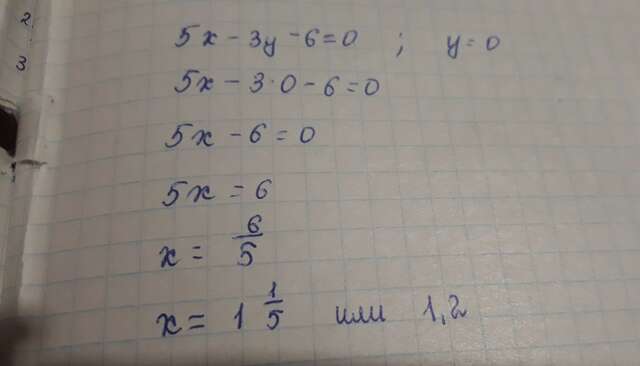 2
3
5x - 3y - 6 = 0 ; y = 0
5x - 3 · 0 - 6 = 0
5x - 6 = 0
5x = 6
x = 6/5
x = 1 1/5 или 1,2